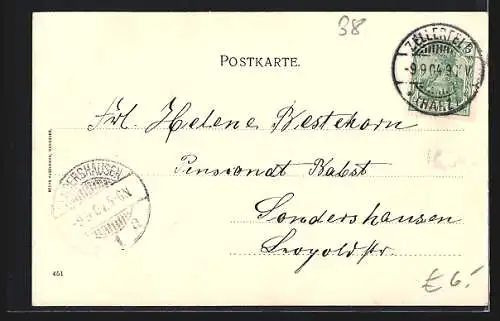 38
POSTKARTE.
ZELLERFELD
-9.9.04.9 V
(HARZ)
Frl. Helene Bestehorn
Pensionat Pabst
Sondershausen
Leopoldstr.
SONDERSHAUSEN
451
£ 6.-